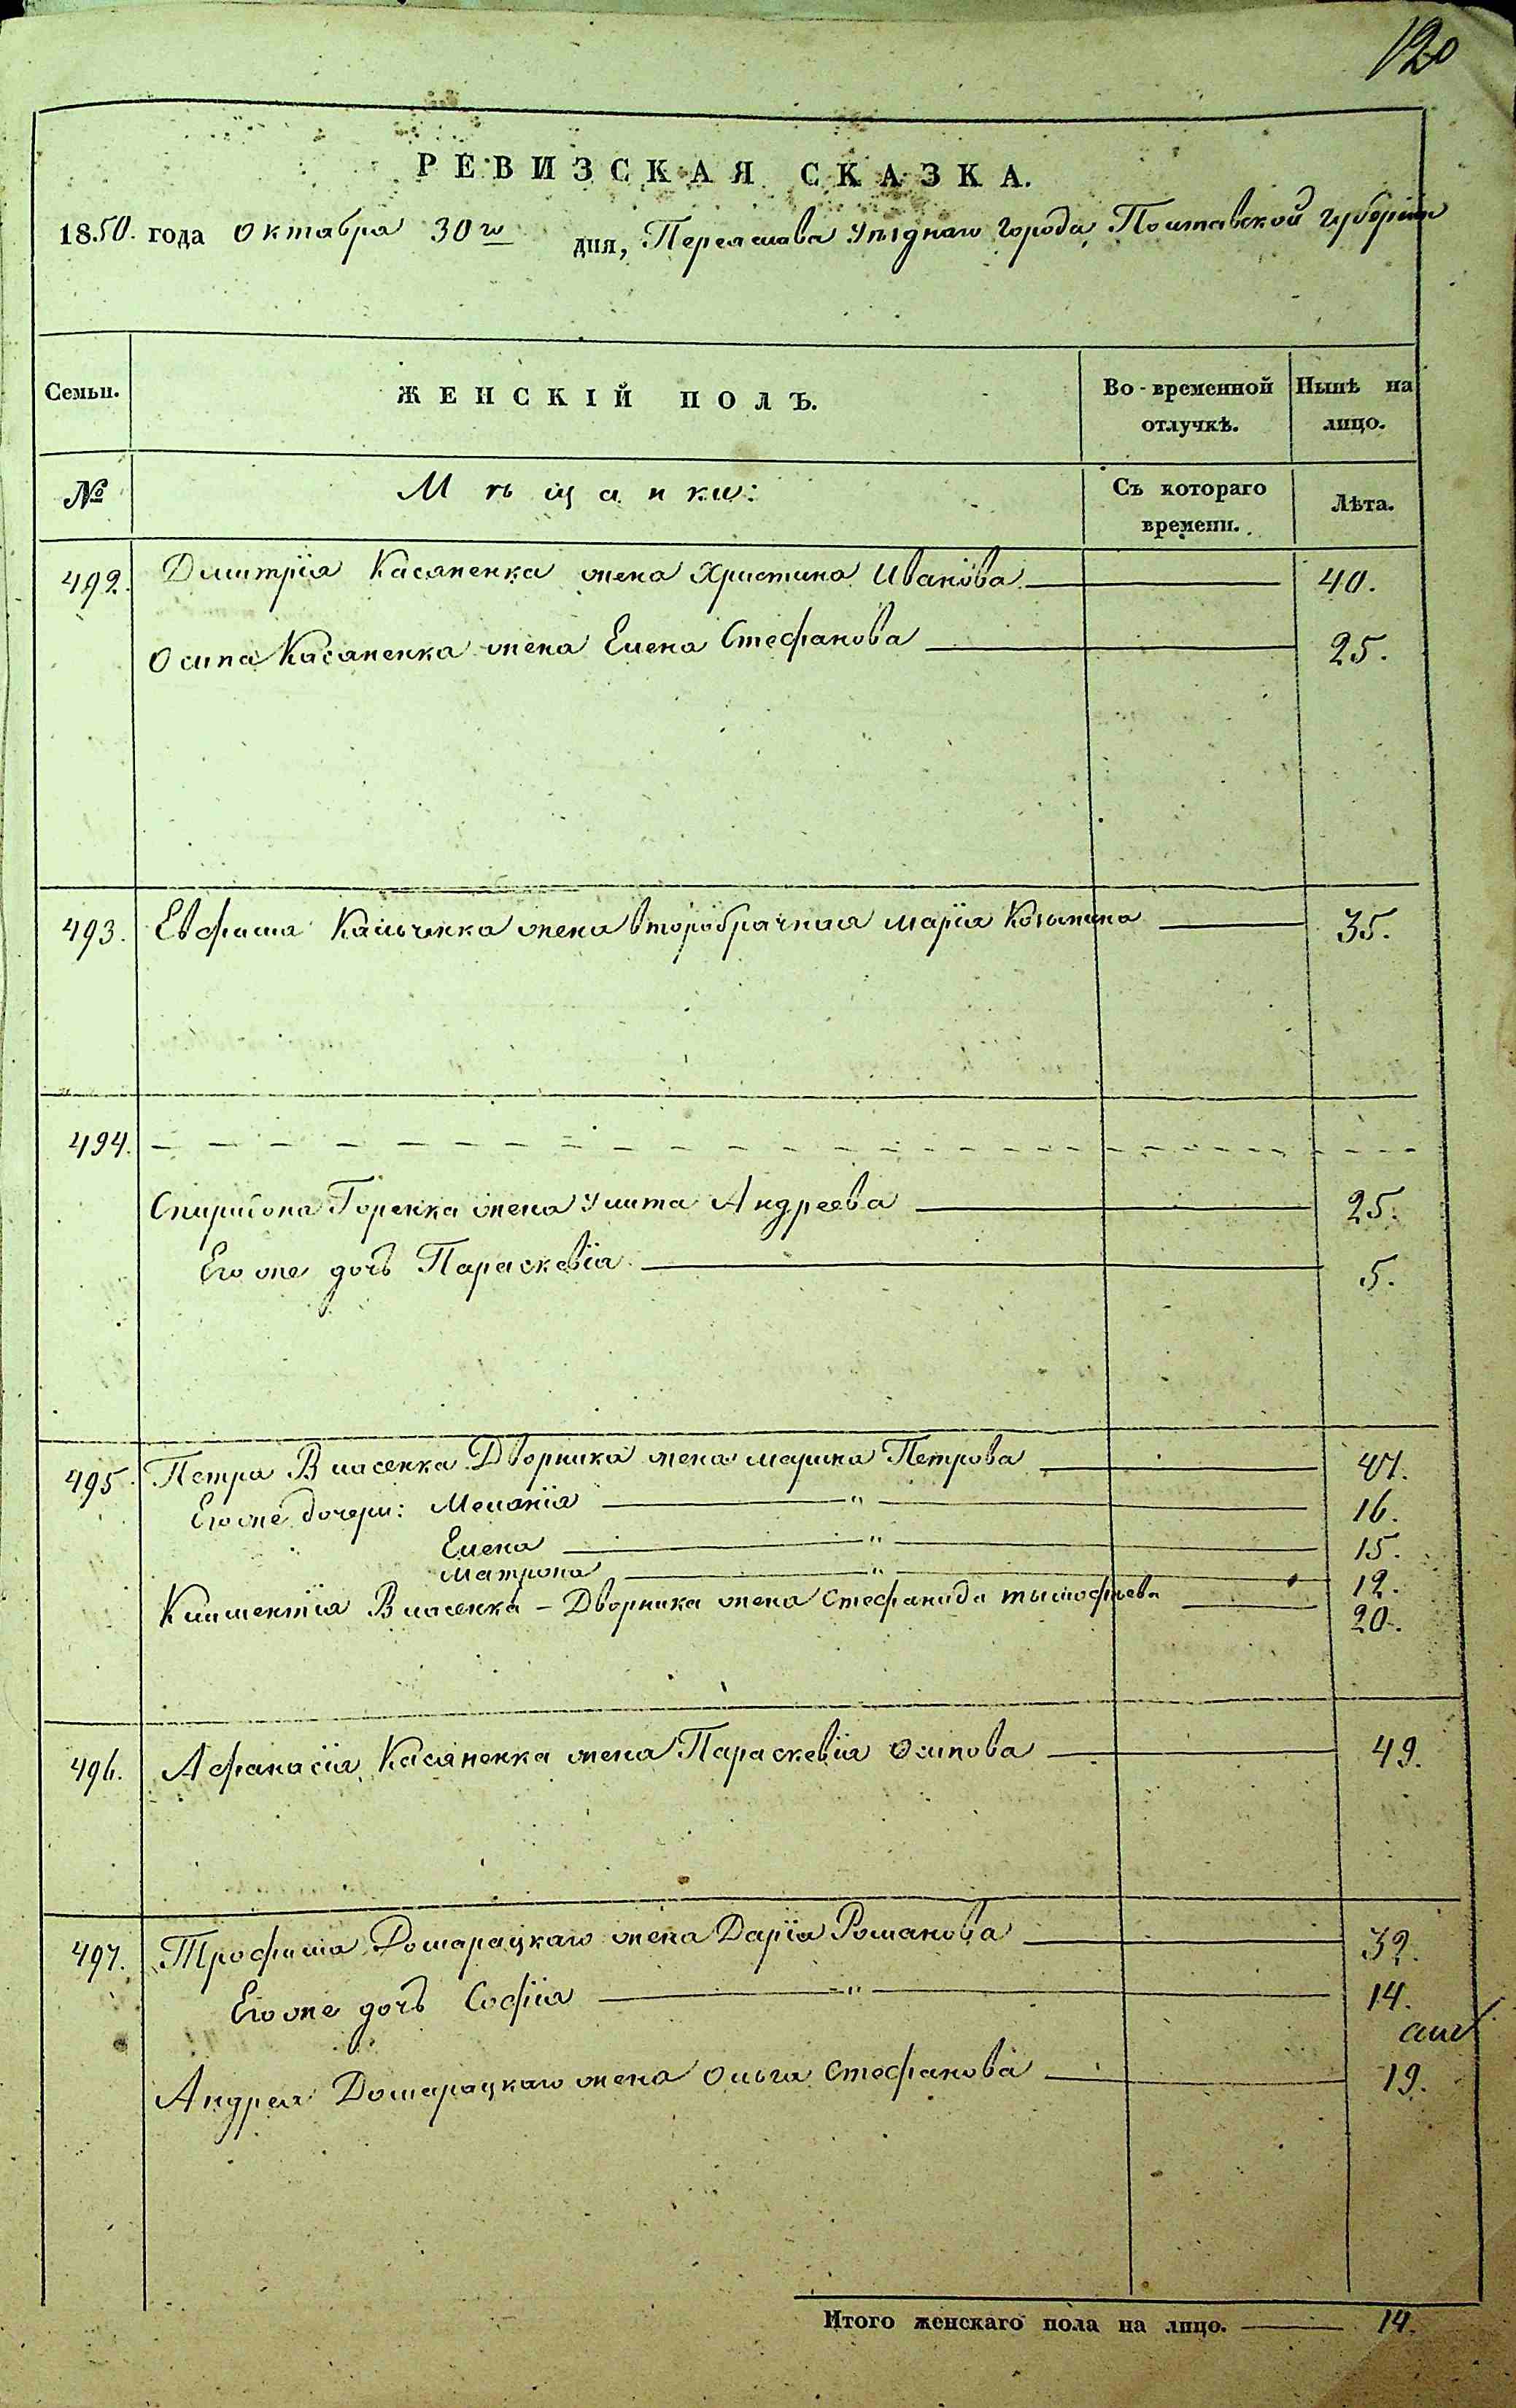 120
РЕВИЗСКАЯ СКАЗКА.
1850. года Октября 30го дня, Переяслава Уѣзднаго города Полтавской губерніи
Семьи. ЖЕНСКІЙ ПОЛЪ. Во-временной отлучкѣ. Нынѣ на лицо.
№ Мѣщанки: Съ котораго времени. Лѣта.
492. Дмитрія Касяненка жена Христина Иванова 40.
Осипа Касяненка жена Елена Стефанова 25.
493. Евфима Кальченка жена второбрачная Марія Козьмина 35.
494.
Спиридона Горенка жена Улита Андреева 25.
Его же дочь Параскевія 5.
495. Петра Власенка Дворника жена Марина Петрова 47.
Его же дочери: Меланія " 16.
Елена " 15.
Матрона " 12.
Климентія Власенка - Дворника жена Стефанида Тымофѣева 20.
496. Афанасія Касяненка жена Параскевія Осипова 49.
497. Трофима Домарацкаго жена Дарія Романова 32.
Его же дочь Софія " 14.
Андрея Домарацкаго жена Ольга Стефанова 19.
Итого женскаго пола на лицо. 14.